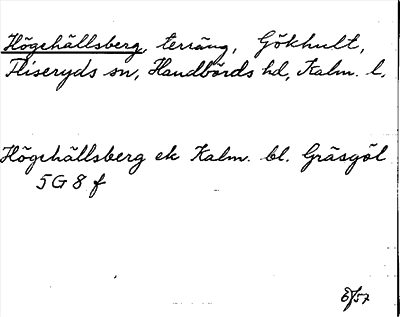 Högehällsberg, terräng, Gökhult,
Fliseryds sn, Handbörds hd, Kalm. l,
Högehällsberg ek Kalm. bl. Gräsgöl
5G8f